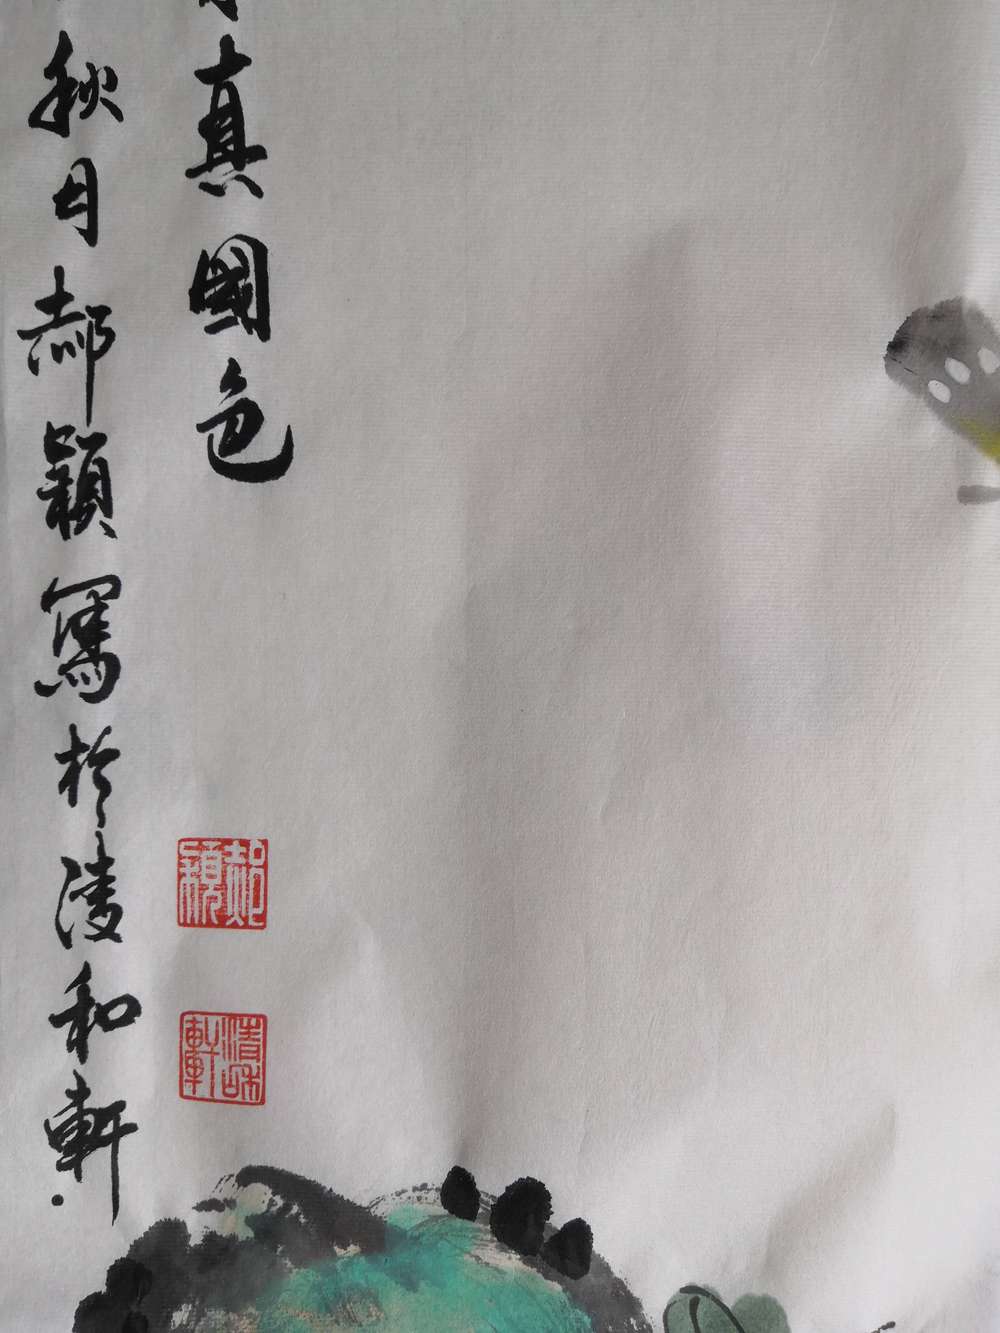 真國色
秋月郝穎寫於清和軒
郝穎
清味軒